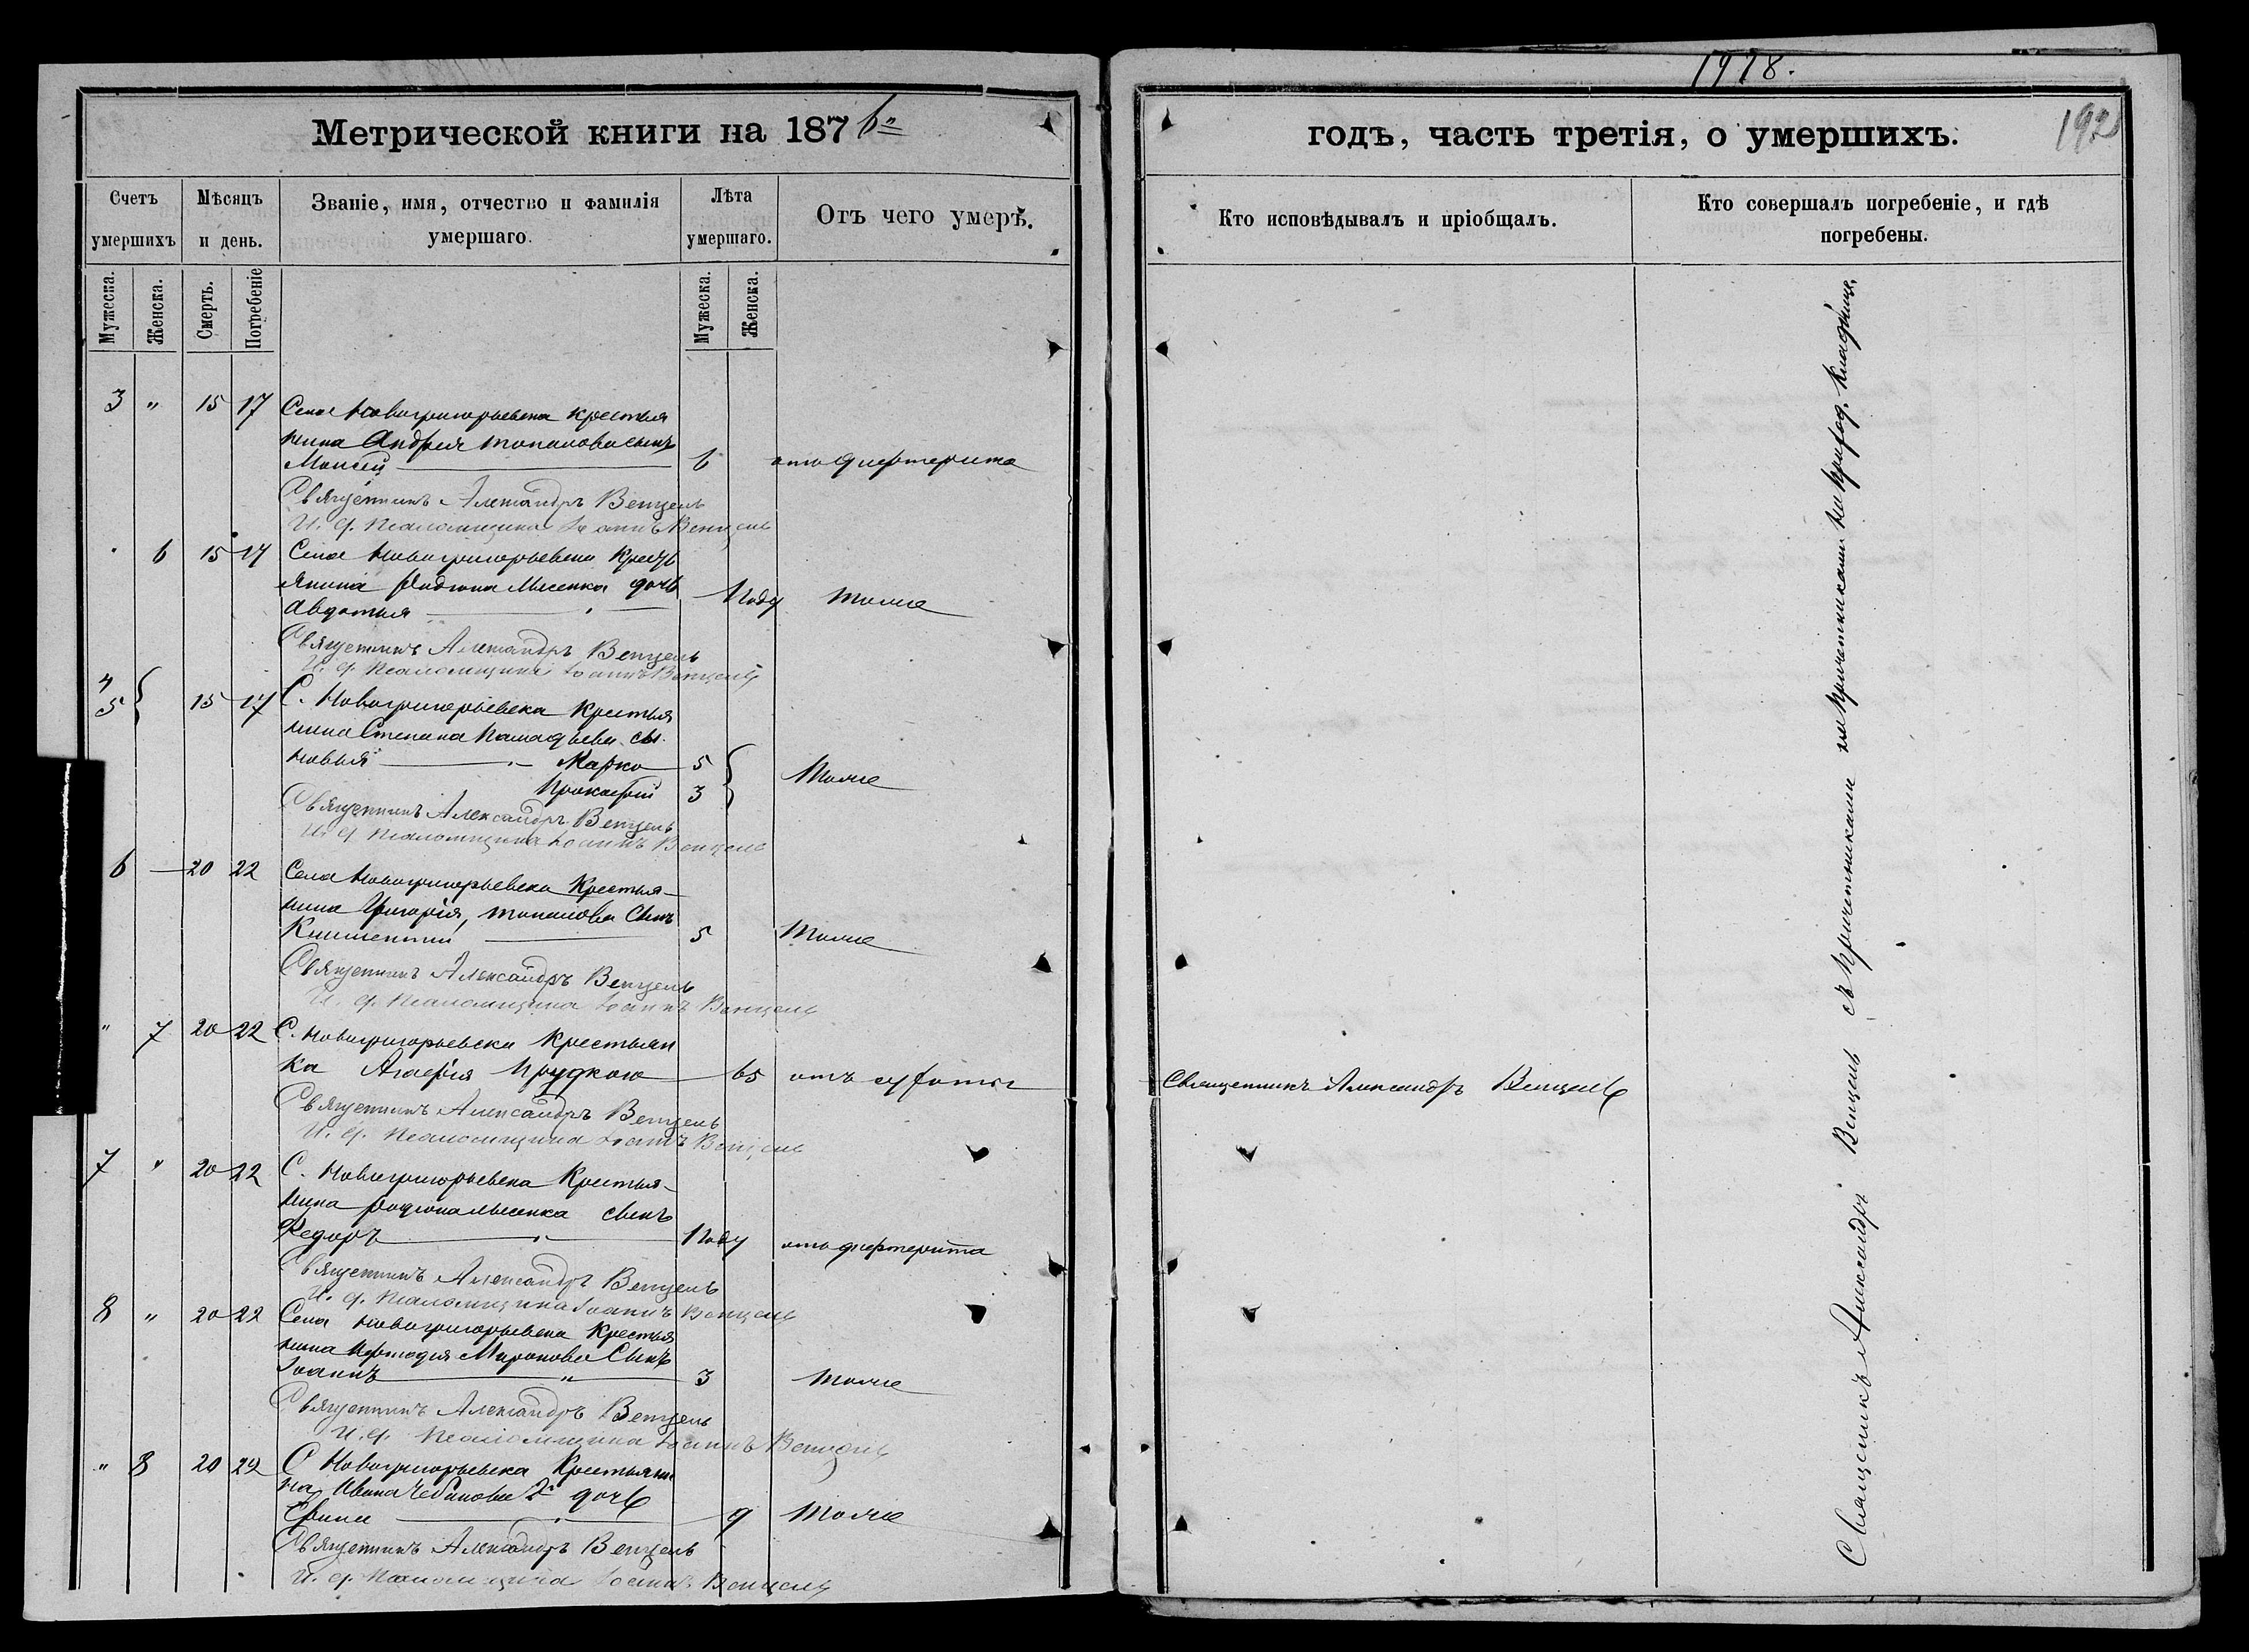 Метрической книги на 1876 г
Счетъ умершихъ
Мѣсяцъ и день.
Званіе, имя, отчество и фамилія умершаго.
Лѣта умершаго.
Отъ чего умерѣ.
Мужеска. Женска. Смерть. Погребеніе Мужеска. Женска.
3 " 15 17 Села Новогригорьевка крестья
нина Андрея Топалова сынъ
Моисей 6 отъ дифтерита
Священникъ Александръ Венцель
И. д. псаломщика Іоаннъ Венцель
6 15 17 Села Новогригорьевка Кресть
янина Родіона Лысенка дочь
Авдотья 1 году тоже
Священникъ Александръ Венцель
И. д. псаломщика Іоаннъ Венцель
4
5 15 17 С. Новогригорьевка Крестья
нина Степана сы
новья Марко 5
Прокофій 3 тоже
Священникъ Александръ Венцель
И. д. псаломщика Іоаннъ Венцель
6 — 20 22 Села Новогригорьевка Крестья-
нина Григорія Топалова Сынъ
5 тоже
Священникъ Александръ Венцель
И. д. псаломщика Іоаннъ Венцель
" 7 20 22 С. Новогригорьевка Крестьян
ка Агафія 65 отъ
Священникъ Александръ Венцель
И. д. псаломщика Іоаннъ Венцель
7 " 20 22 С. Новогригорьевка Крестья-
нина Родіона Лысенка сынъ
Федоръ 1 году отъ дифтерита
Священникъ Александръ Венцель
И. д. псаломщика Іоаннъ Венцель
8 " 20 22 Села Новогригорьевка Крестья
нина Миронова Сынъ
Іоаннъ " 3 тоже
Священникъ Александръ Венцель
И. д. псаломщика Іоаннъ Венцель
" 8 20 22 С Новогригорьевка Крестьяни
на Ивана Чебанова 2й дочь
9 тоже
Священникъ Александръ Венцель
И. д. псаломщика Іоаннъ Венцель
1978.
192
годъ, часть третія, о умершихъ.
Кто исповѣдывалъ и пріобщалъ.
Кто совершалъ погребеніе, и гдѣ погребены.
Священникъ Александръ Венцель
Священникъ Александръ Венцель съ причетниками на приход. кладбище,